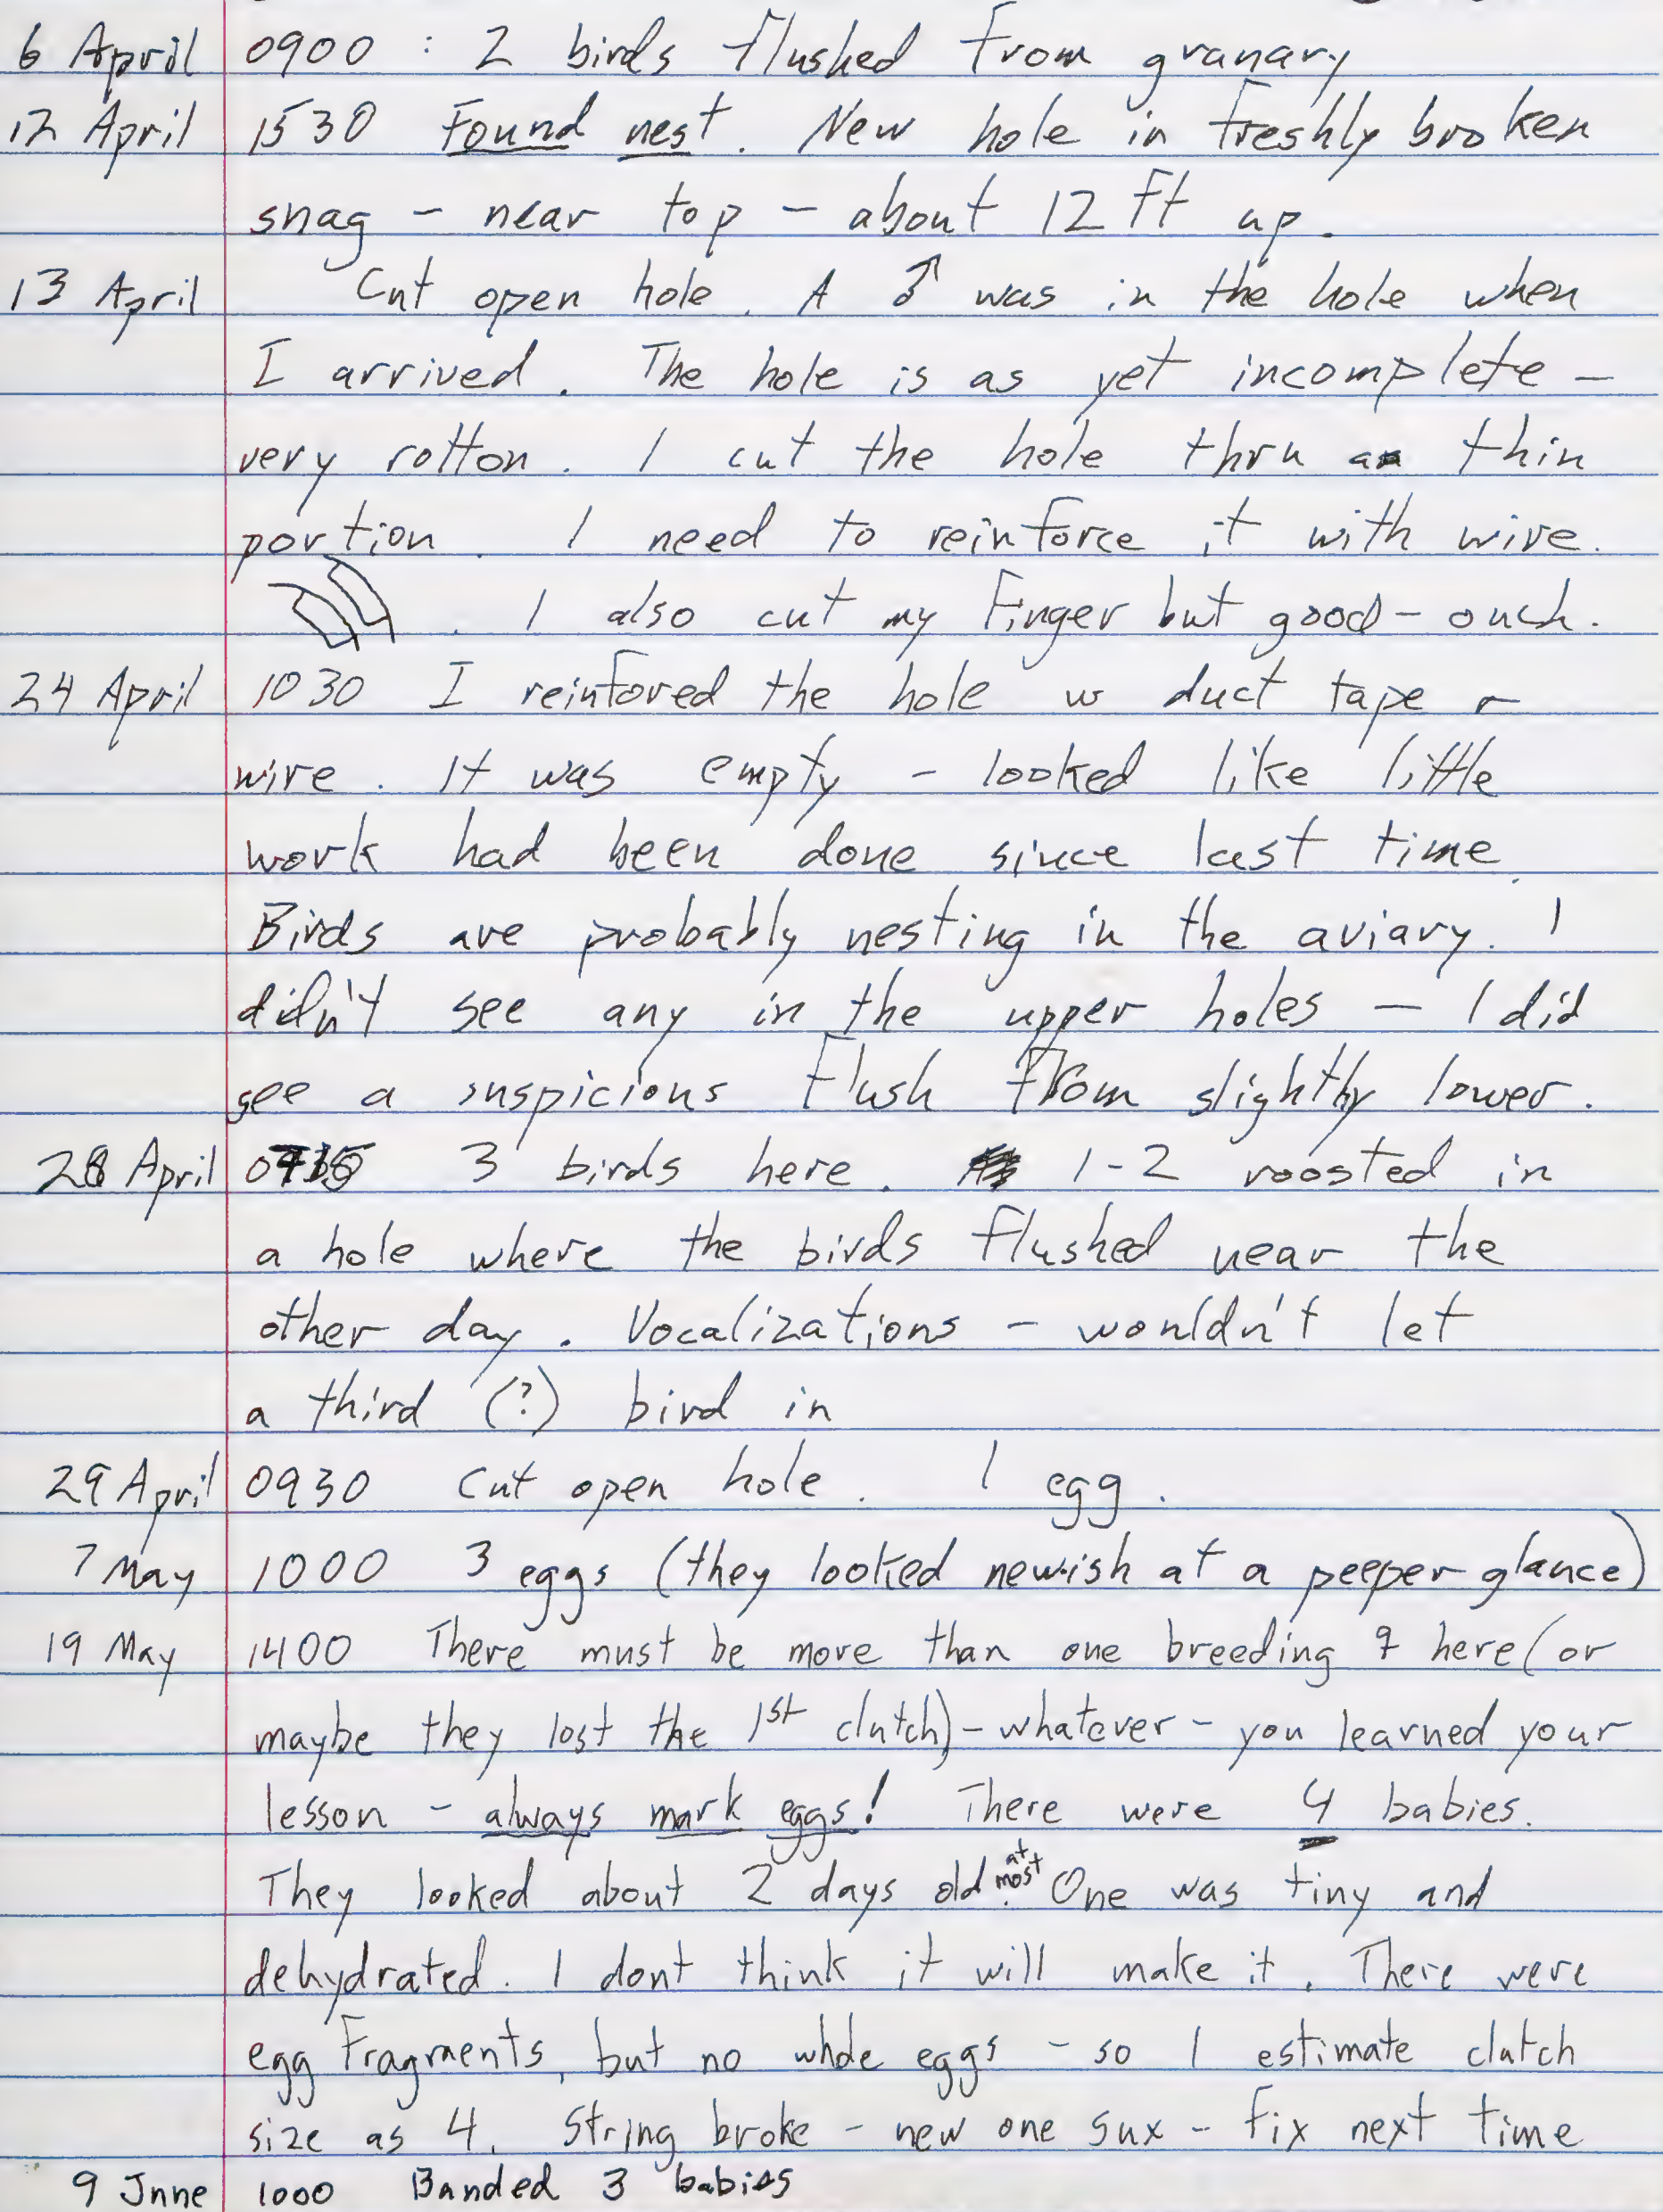 6 April 0900 : 2 birds flushed from granary
12 April 1530 Found nest. New hole in freshly broken
snag - near top - about 12 ft up.
13 April Cut open hole. A ♂ was in the hole when
I arrived. The hole is as yet incomplete -
very rotton. I cut the hole thru a thin
portion. I need to reinforce it with wire.
. I also cut my finger but good - ouch.
24 April 1030 I reinfored the hole w duct tape +
wire. It was empty - looked like little
work had been done since last time.
Birds are probably nesting in the aviary. I
didn't see any in the upper holes - I did
see a suspicious flush from slightly lower.
28 April 3 birds here. 1-2 roosted in
a hole where the birds flushed near the
other day. Vocalizations - wouldn't let
a third (?) bird in
29 April 0930 Cut open hole. 1 egg.
7 May 1000 3 eggs (they looked newish at a peeper glance)
19 May 1400 There must be more than one breeding ♀ here (or
maybe they lost the 1st clutch) - whatever - you learned your
lesson - always mark eggs! There were 4 babies.
They looked about 2 days old at most. One was tiny and
dehydrated. I dont think it will make it. There were
egg fragments, but no whole eggs - so I estimate clutch
size as 4. String broke - new one sux - fix next time
9 June 1000 Banded 3 babies